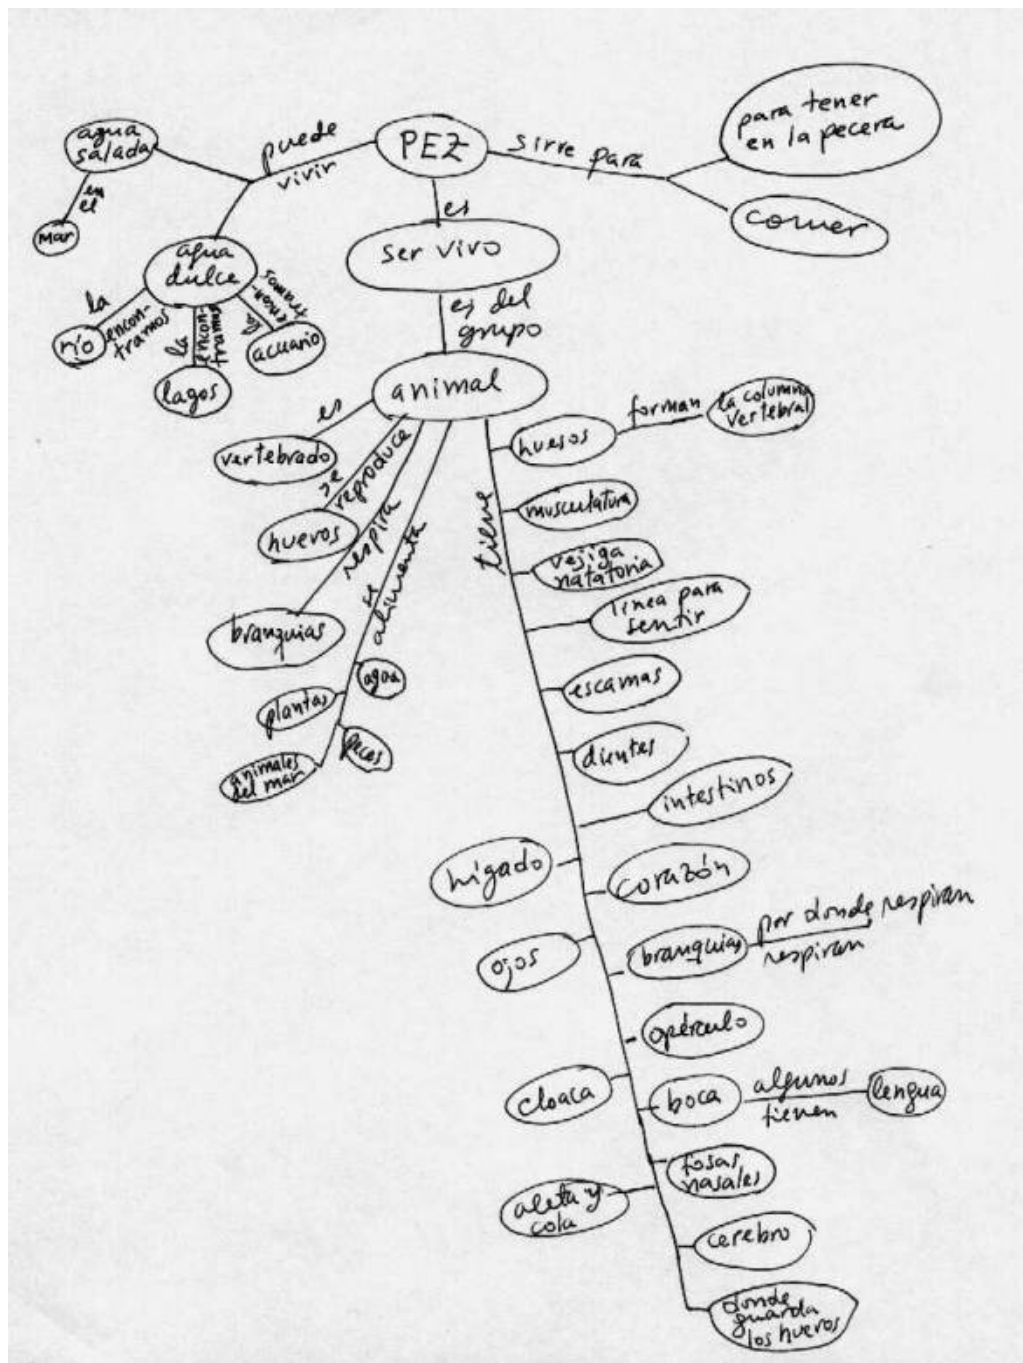 PEZ
puede
vivir
agua
salada
en
el
mar
agua
dulce
la
encon-
tramos
río
la
encon-
tramos
lagos
la
encon-
tramos
acuario
sirve para
para tener
en la pecera
comer
es
ser vivo
es del
grupo
animal
es
vertebrado
se
reproduce
huevos
respira
branquias
se
alimenta
agua
plantas
peces
animales
del mar
tiene
huesos
forman
la columna
vertebral
musculatura
vejiga
natatoria
línea para
sentir
escamas
dientes
intestinos
hígado
corazón
ojos
branquias
por donde respiran
respiran
opérculo
cloaca
boca
algunos
tienen
lengua
fosas
nasales
aleta y
cola
cerebro
donde
guarda
los huevos